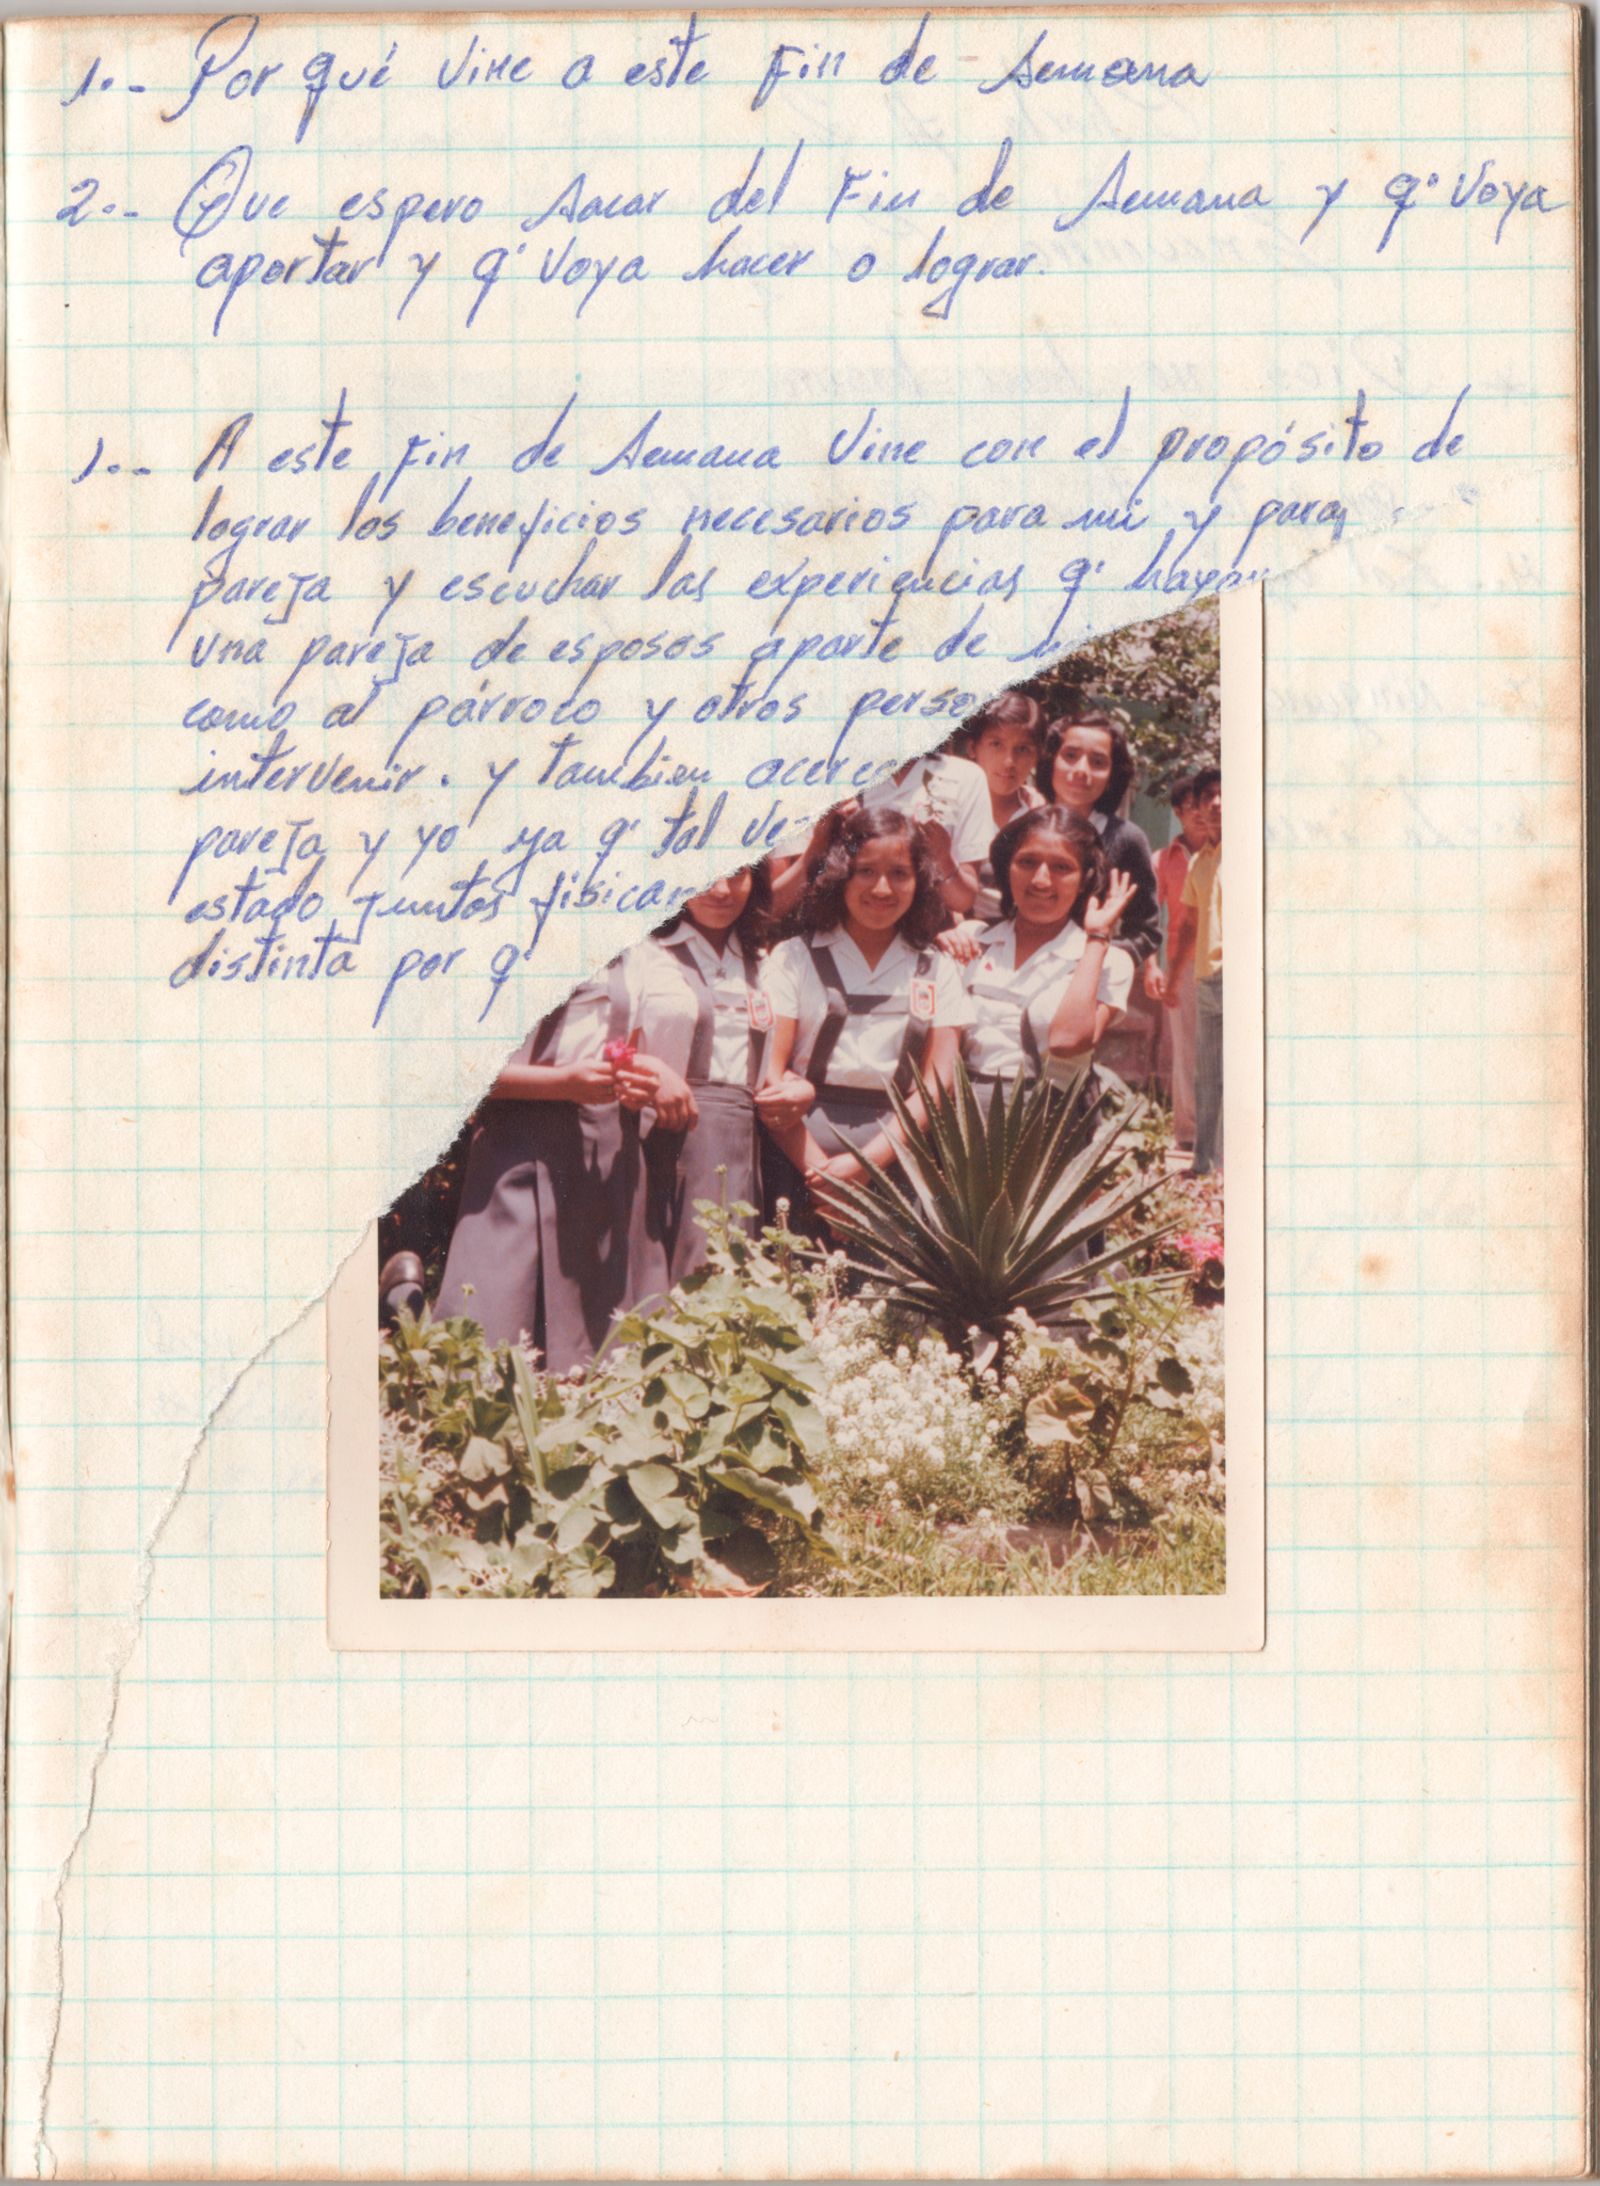 1.- Por qué vine a este Fin de Semana
2.- Que espero sacar del Fin de Semana y q' voya
aportar y q' voya hacer o lograr.
1.- A este fin de semana vine con el propósito de
lograr los beneficios necesarios para mi y para
pareja y escuchar las experiencias q' hayan
una pareja de esposos aparte de
como al párroco y otros perso
intervenir. y tambien acerca
pareja y yo ya q' tal ve
estado juntos fisicam
distinta por q'